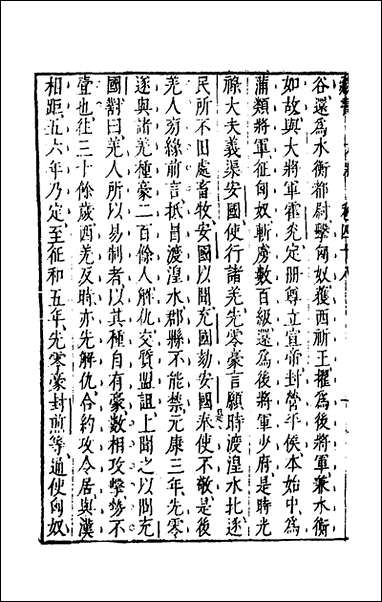 谷還爲水衡都尉擊匈奴獲西祁王擢爲後將軍兼水衡
如故與大將軍霍光定冊尊立宣帝封營平侯本始中爲
蒲類將軍征匈奴斬虜數百級還爲後將軍少府是時光
祿大夫義渠安國使行諸羌先零豪言願時渡湟水北逐
民所不田處畜牧安國以聞充國劾安國奉使不敬是後
羌人旁緣前言抵冒渡湟水郡縣不能禁元康三年先零
遂與諸羌種豪二百餘人解仇交質盟詛上聞之以問充
國對曰羌人所以易制者以其種自有豪數相攻擊勢不
壹也往三十餘歲西羌反時亦先解仇合約攻令居與漢
相距五六年乃定至征和五年先零豪封煎等通使匈奴